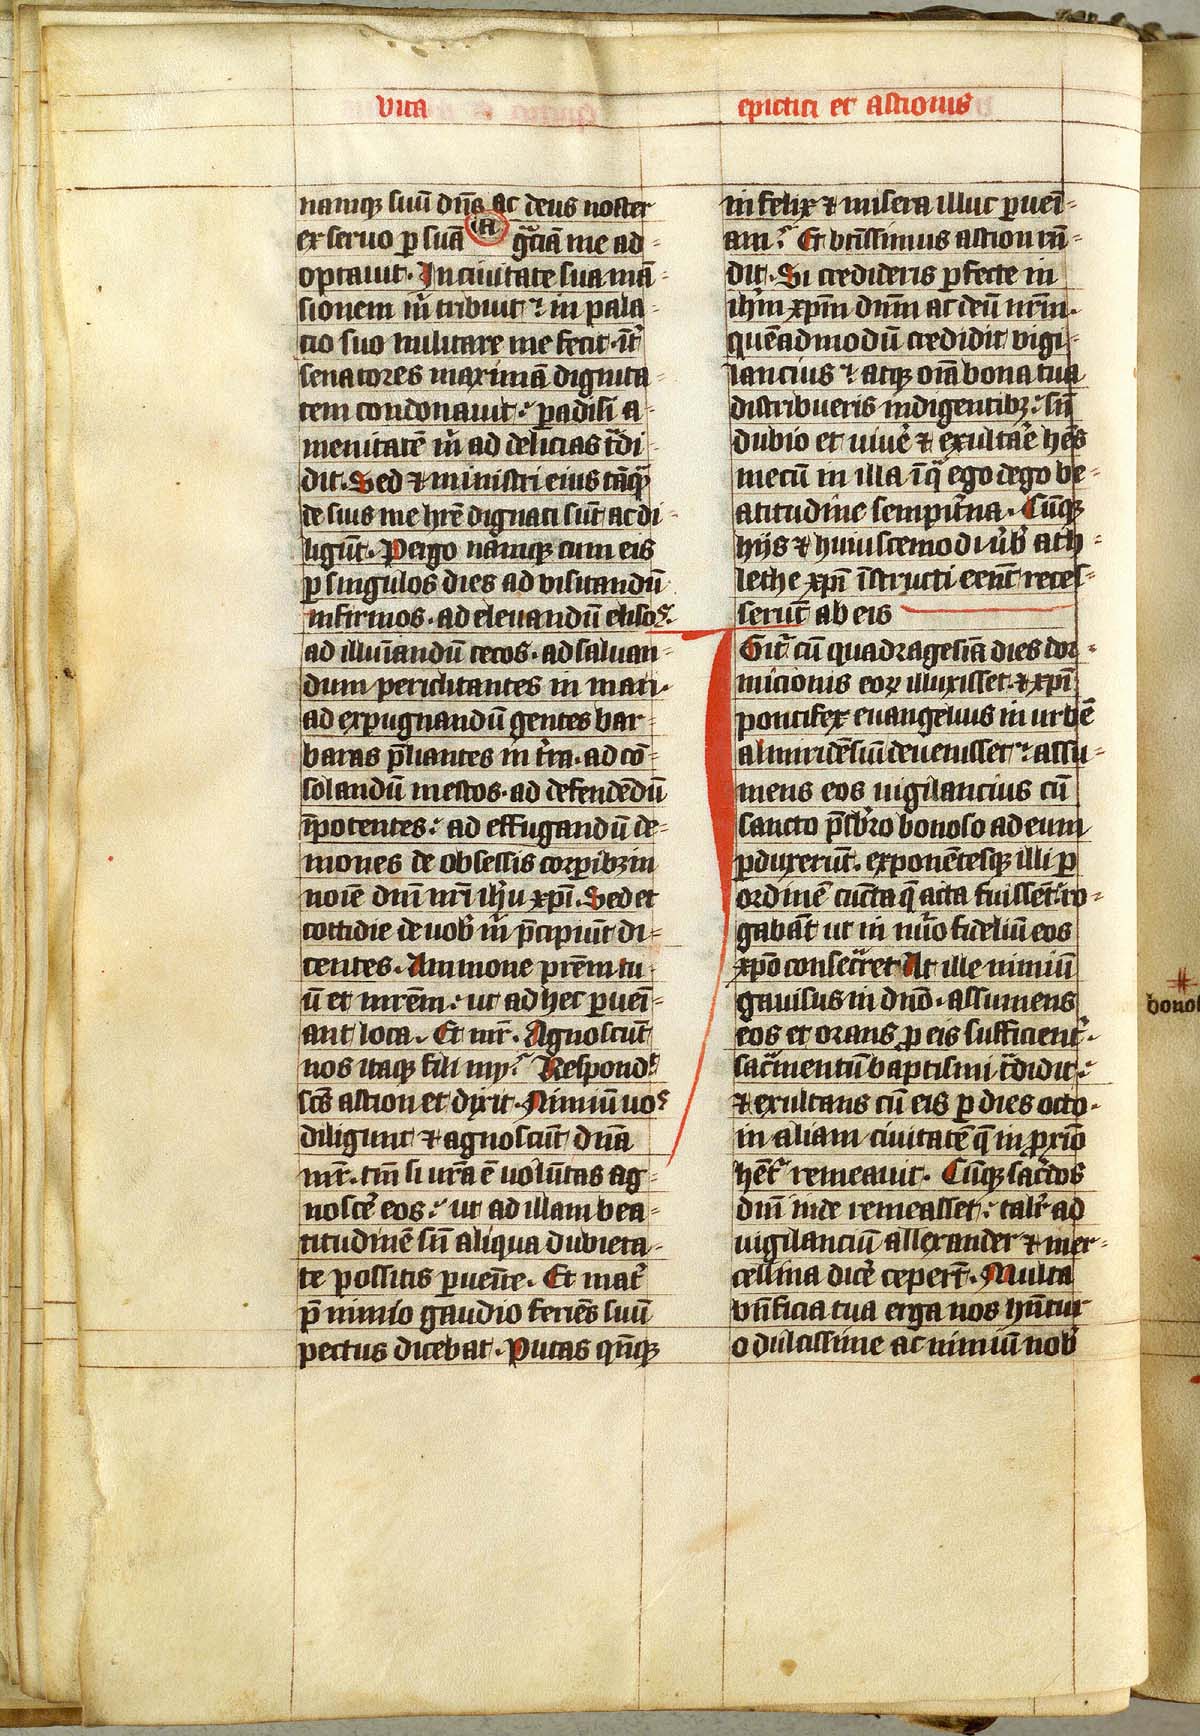 vita
epictiti et astionis
namq; suū dn̄s ac deus noster
ex seruo ꝑ suā
ia
gr̄ciam me ad-
optauit. In ciuitate sua mā-
sionem m̄ tribuit et in pala-
cio suo militare me fecit. īt̄
senatores maximā dignita-
tem condonauit: ꝑadisi a-
menitatē m̄ ad delicias t̄di-
dit. Sed ⁊ ministri eius tāq̄
de suis me hr̄e dignati sūt ac di-
ligūt. Pergo nāmq; cum eis
ꝑ singulos dies ad visitandū
infirmos. ad eleuandū elisos.
ad illuīandū cecos. ad saluan-
dum periclitantes in mari.
ad expugnandū gentes bar-
baras p̄liantes in t̄ra. ad cō-
solandū mestos. ad defendēdū
īpotentes: ad effugandū de-
mones de obsessis corꝑib; in
noīe dn̄i nr̄i ih̄u xp̄i. Sed et
cottidie de uob̄ m̄ p̄cipiūt di-
centes. Ammone pr̄em tu-
ū et mr̄em: ut ad hec ꝑueī-
ant loca. Et mr̄. Agnoscūt
nos itaq; fili my? Respond̄s
sc̄s astion et dixit. Nimiū uos
diligunt ⁊ agnoscūt dn̄a
mr̄. tn̄ si vr̄a ē volūtas ag-
noscē eos: ut ad illam bea-
titudinē sn̄ aliqua dubieta-
te possitis ꝑuenr̄e. Et mat̄
p̄ nimio gaudio feriēs suū
pectus dicebat. Putas qn̄q;
infelix ⁊ misera illuc ꝑueī-
am? Et bt̄issimus astion rn̄-
dit. Si credideris ꝑfecte in
ih̄m xp̄m dn̄m ac deū nr̄m.
quēadmodū credidit vigi-
lancius et atq; oīa bona tua
distribueris indigentib;: sn̄
dubio et viuē ⁊ exultar̄e hēs
mecū in illa ī q̄ ego dego be-
atitudine sempit̄na. Cūq;
hijs ⁊ huiuscemodi ūb̄ ath-
lethe xp̄i īstructi eent̄ reces-
serūt ab eis
Git̄ cū quadragesīa dies dor-
micionis eoꝝ illuxisset. ⁊ xp̄i
pontifex euangelius in urbē
almiridēsiū deuenisset et assu-
mens eos vigilancius cū
sancto p̄sb̄ro bonoso ad eum
ꝑduxerūt. exponētesq; illi ꝑ
ordinē cūcta q̄ acta fuisset. ro-
gabāt ut in nūo fideliū eos
xp̄o consecr̄et At ille nimiū
gauisus in dn̄o. assumens
eos et orans ꝓ eis sufficient̄.
sacr̄mentū baptismi t̄didit:
⁊ exultans cū eis ꝑ dies octo.
in aliam ciuitatē q̄ in ꝓxīo
hēt̄ remeauit. Cūq; sac̄dos
dn̄i inde remeasset: talit̄ ad
vigilanciū allexander ⁊ mer-
cellina dicē ceper̄t. Multa
bn̄ficia tua erga nos hn̄tur
o dulcissime ac nimiū nob̄